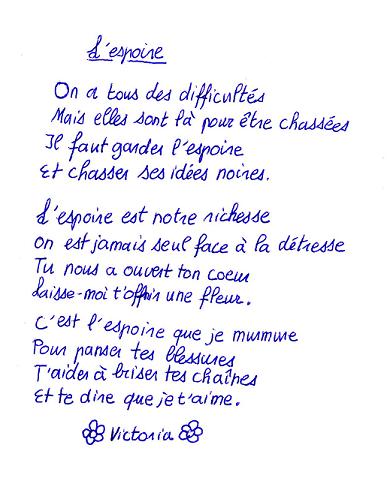 L'espoire
On a tous des difficultés
Mais elles sont là pour être chassées
Il faut garder l'espoire
Et chasser ses idées noires.
L'espoire est notre richesse
On est jamais seul face à la détresse
Tu nous a ouvert ton coeur
Laisse-moi t'offrir une fleur.
C'est l'espoire que je murmure
Pour panser tes blessures
T'aider à briser tes chaînes
Et te dire que je t'aime.
Victoria